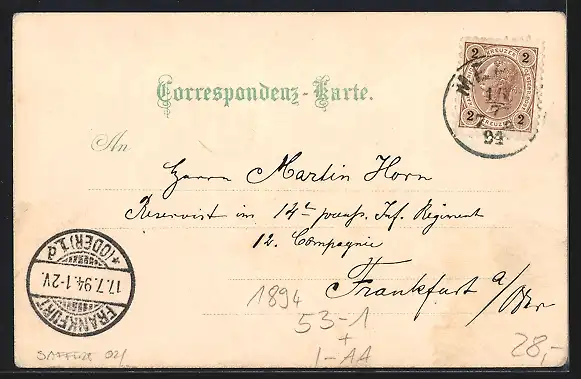 Correspondenz-Karte.
2 KREUZER 2
2 KREUZER 2
94
An
Herrn Martin Horn
Reservist im 14ᵗ preuss. Inf. Regiment
12. Compagnie
Frankfurt a/Oder
FRANKFURT *(ODER)1.d
17.7.94.1-2V.
1894
53-1
+
1-AA
28,-